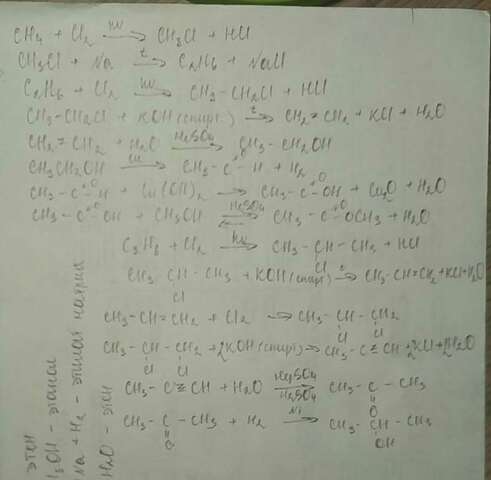 CH₄ + Cl₂ —hν→ CH₃Cl + HCl
CH₃Cl + Na —t→ C₂H₆ + NaCl
C₂H₆ + Cl₂ —hν→ CH₃-CH₂Cl + HCl
CH₃-CH₂Cl + KOH (спирт) —t→ CH₂=CH₂ + KCl + H₂O
CH₂=CH₂ + H₂O —H₂SO₄→ CH₃-CH₂OH
CH₃CH₂OH —Cu→ CH₃-C(=O)-H + H₂
CH₃-C(=O)-H + Cu(OH)₂ → CH₃-C(=O)-OH + Cu₂O + H₂O
CH₃-C(=O)-OH + CH₃OH —H₂SO₄⇄ CH₃-C(=O)-OCH₃ + H₂O
C₃H₈ + Cl₂ —hν→ CH₃-CH(Cl)-CH₃ + HCl
CH₃-CH(Cl)-CH₃ + KOH (спирт) —t→ CH₃-CH=CH₂ + KCl + H₂O
CH₃-CH=CH₂ + Cl₂ → CH₃-CH(Cl)-CH₂(Cl)
CH₃-CH(Cl)-CH₂(Cl) + 2KOH (спирт) → CH₃-C≡CH + 2KCl + 2H₂O
CH₃-C≡CH + H₂O —HgSO₄, H₂SO₄→ CH₃-C(=O)-CH₃
CH₃-C(=O)-CH₃ + H₂ —Ni→ CH₃-CH(OH)-CH₃
этен
OH - этанол
Na + H₂ - этилат натрия
H₂O - этен